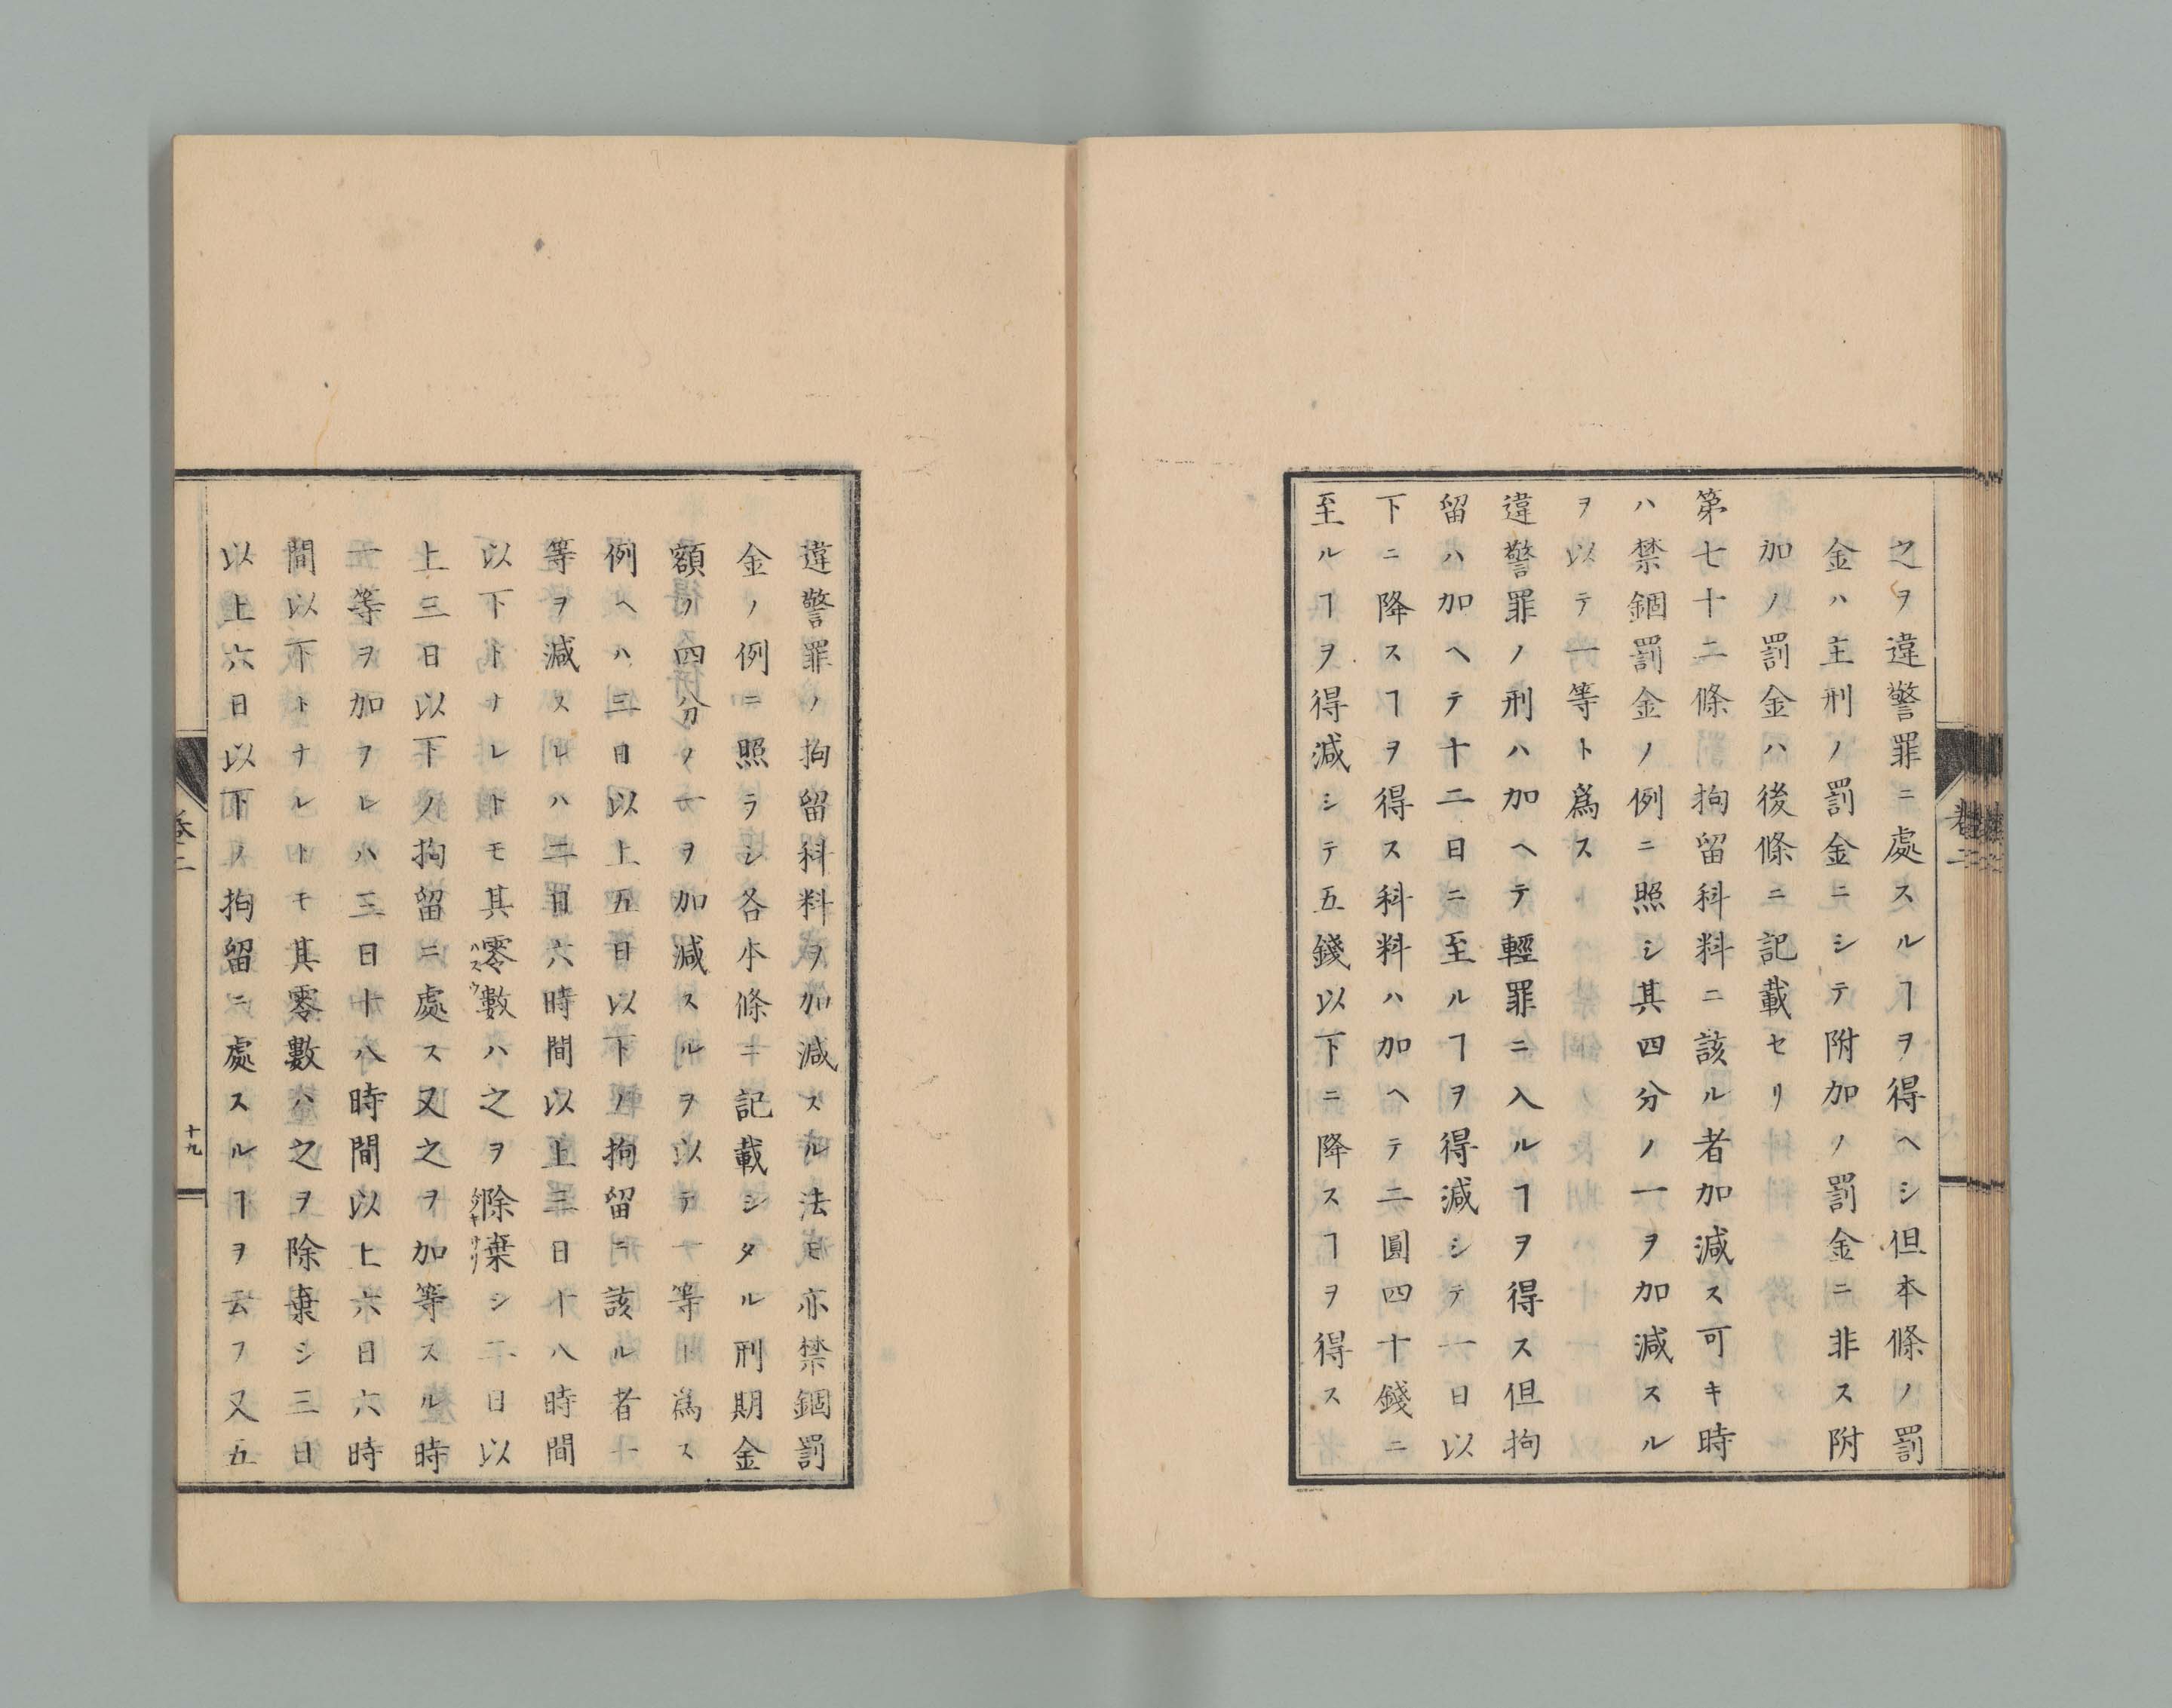 之ヲ違警罪ニ處スルヿヲ得ヘシ但本條ノ罰
金ハ主刑ノ罰金ニシテ附加ノ罰金ニ非ス附
加ノ罰金ハ後條ニ記載セリ
第七十二條拘留科料ニ該ル者加減ス可キ時
ハ禁錮罰金ノ例ニ照シ其四分ノ一ヲ加減スル
ヲ以テ一等ト爲ス
違警罪ノ刑ハ加ヘテ輕罪ニ入ルヿヲ得ス但拘
留ハ加ヘテ十二日ニ至ルヿヲ得減シテ一日以
下ニ降スヿヲ得ス科料ハ加ヘテ二圓四十錢ニ
至ルヿヲ得減シテ五錢以下ニ降スヿヲ得ス
卷二
違警罪ノ拘留科料ヲ加減スル法モ亦禁錮罰
金ノ例ニ照ラシ各本條ニ記載シタル刑期金
額ノ四分ノ一ヲ加減スルヲ以テ一等ト爲ス
例ヘハ三日以上五日以下ノ拘留ニ該ル者一
等ヲ減スレハ二日六時間以上三日十八時間
以下トナレトモ其零數ハ之ヲ除棄シ二日以
ハスウ
トリサケ
上三日以下ノ拘留ニ處ス又之ヲ加等スル時
一等ヲ加フレハ三日十八時間以上六日六時
間以下トナレトモ其零數ハ之ヲ除棄シ三日
以上六日以下ノ拘留ニ處スルヿヲ云フ又五
卷二
十九